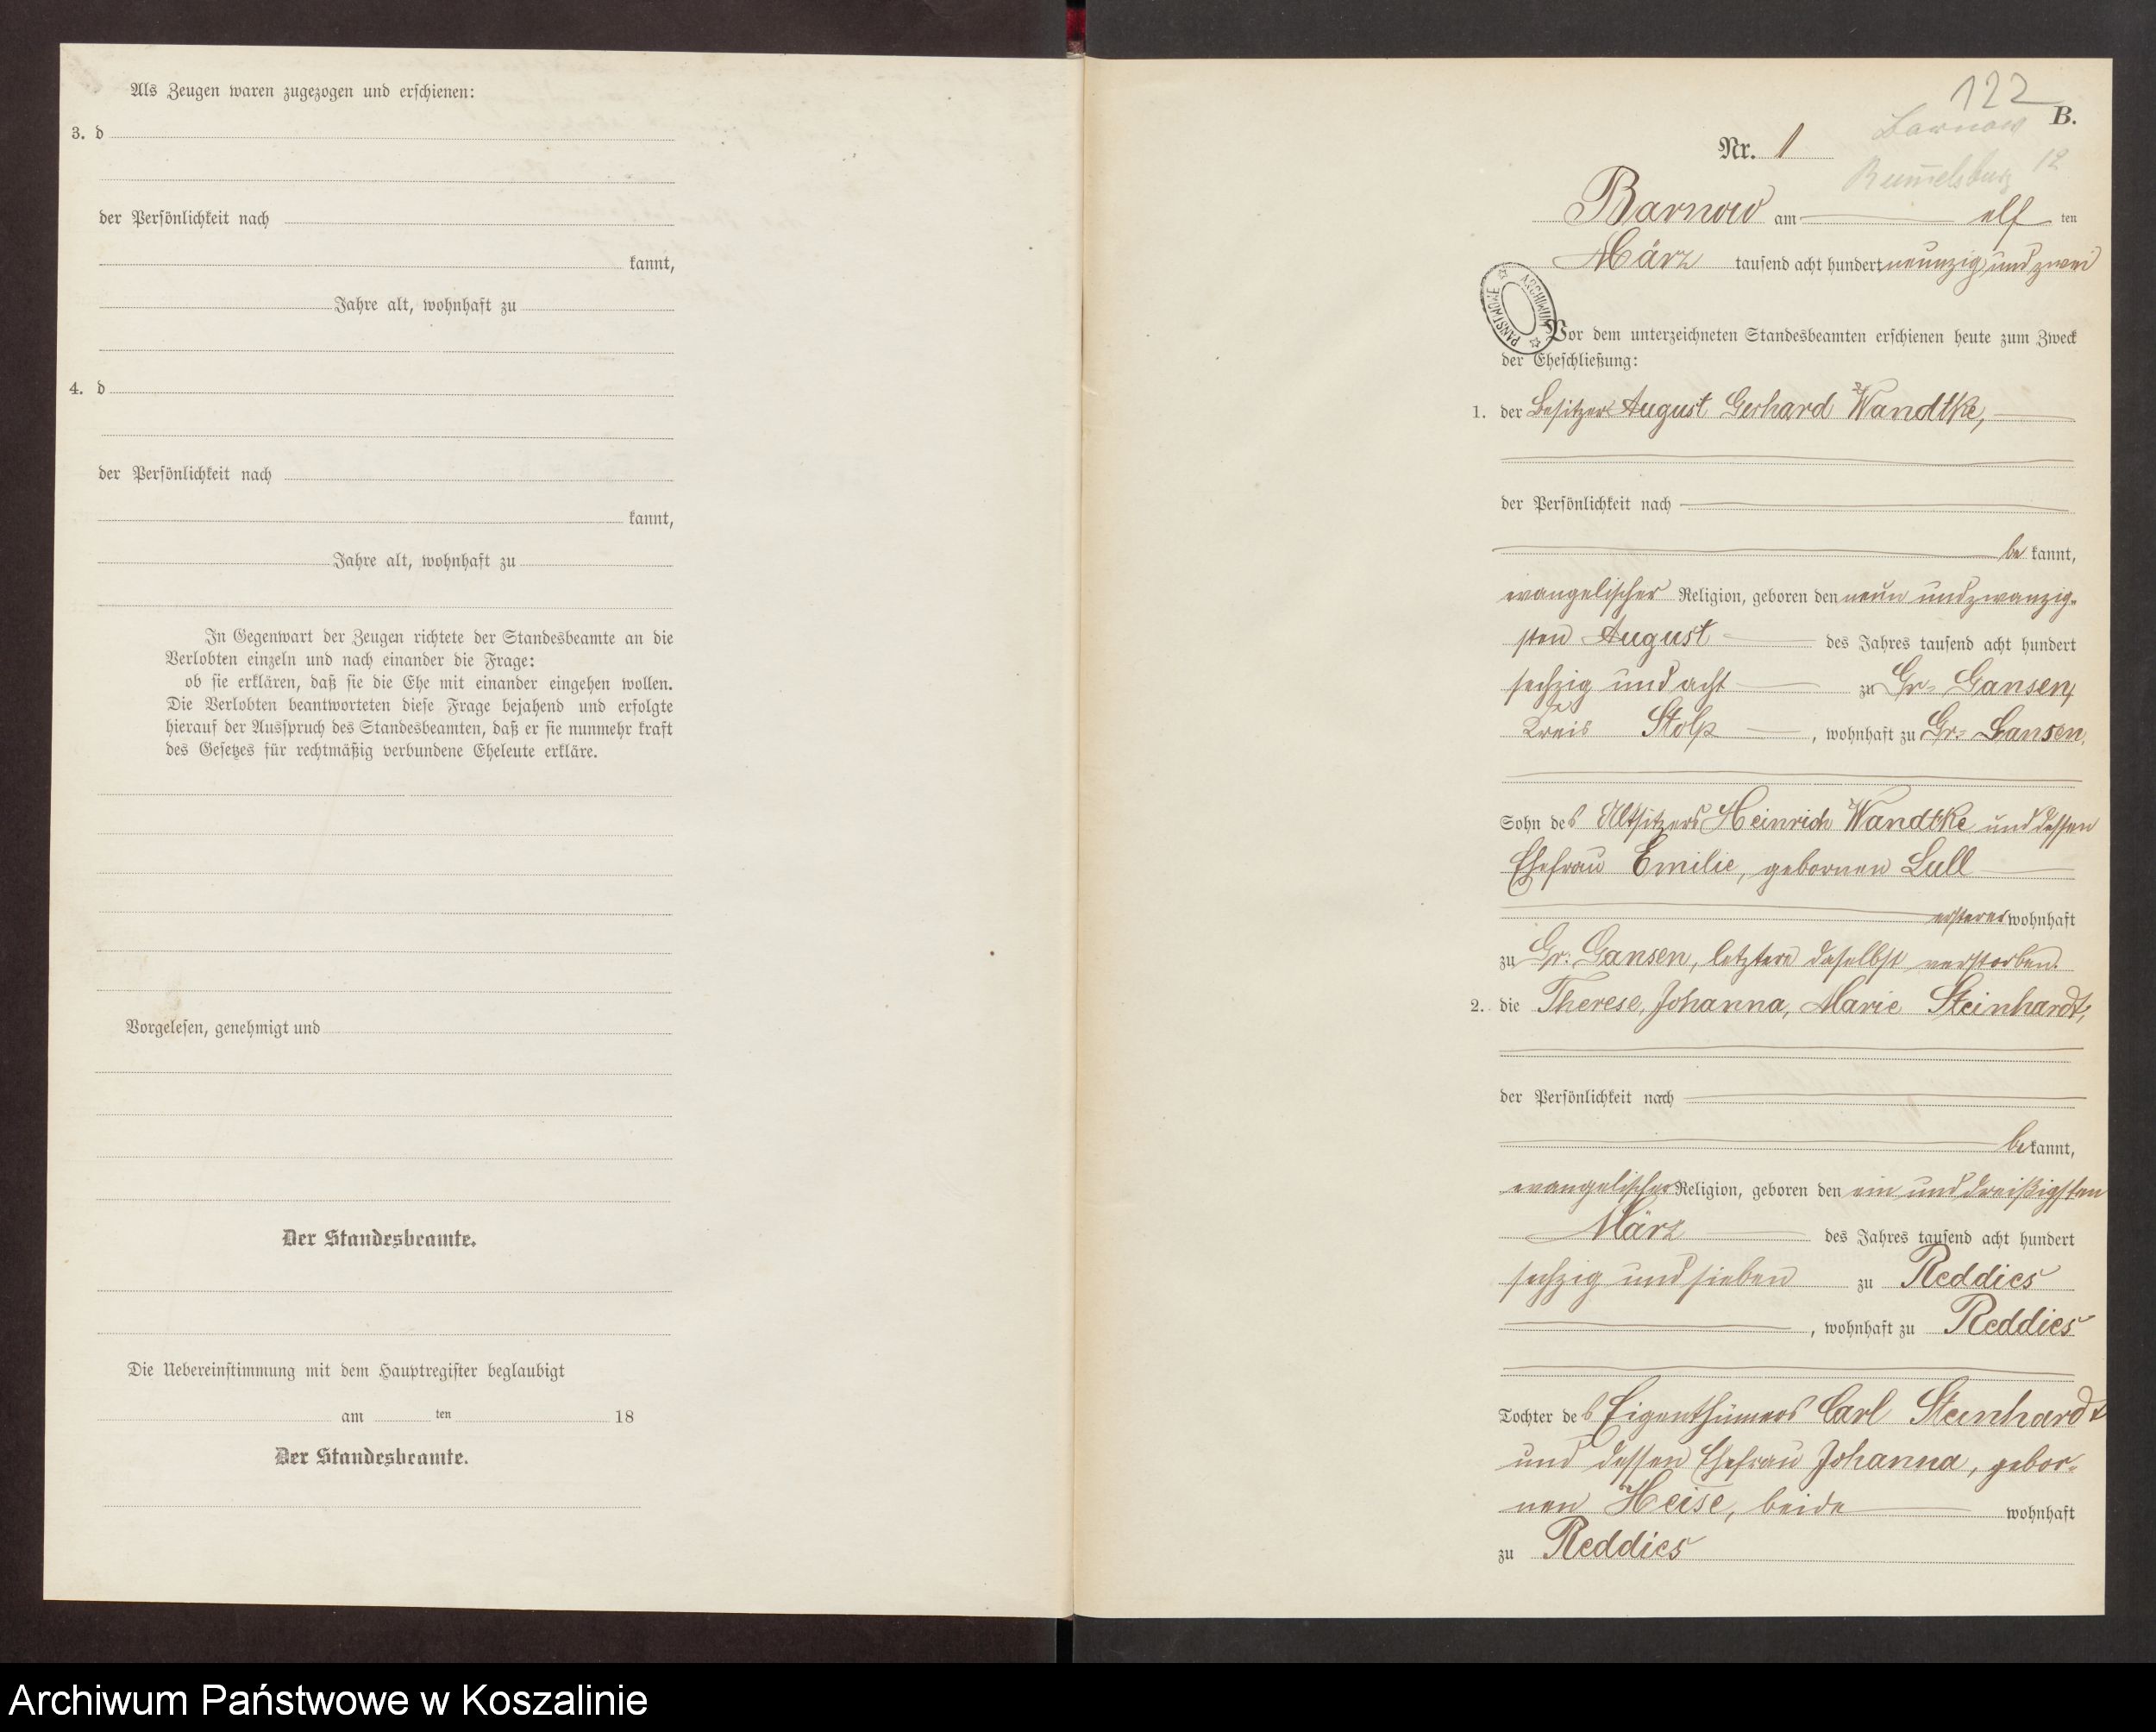 Als Zeugen waren zugezogen und erschienen:
3. d
der Persönlichkeit nach
kannt,
Jahre alt, wohnhaft zu
4. d
der Persönlichkeit nach
kannt,
Jahre alt, wohnhaft zu
In Gegenwart der Zeugen richtete der Standesbeamte an die
Verlobten einzeln und nach einander die Frage:
ob sie erklären, daß sie die Ehe mit einander eingehen wollen.
Die Verlobten beantworteten diese Frage bejahend und erfolgte
hierauf der Ausspruch des Standesbeamten, daß er sie nunmehr kraft
des Gesetzes für rechtmäßig verbundene Eheleute erkläre.
Vorgelesen, genehmigt und
Der Standesbeamte.
Die Uebereinstimmung mit dem Hauptregister beglaubigt
am ten 18
Der Standesbeamte.
122
B.
Barnow
Nr. 1
Rummelsburg 12
Barnow am elf ten
März tausend acht hundert neunzig und zwei
ARCHIWUM PAŃSTWOWE
Vor dem unterzeichneten Standesbeamten erschienen heute zum Zweck
der Eheschließung:
1. der Besitzer August Gerhard Wandtke,
der Persönlichkeit nach
be kannt,
evangelischer Religion, geboren den neun und zwanzig-
sten August des Jahres tausend acht hundert
sechzig und acht zu Gr. Gansen,
Kreis Stolp, wohnhaft zu Gr. Gansen,
Sohn des Altsitzers Heinrich Wandtke und dessen
Ehefrau Emilie, gebornen Lull
ersterer wohnhaft
zu Gr. Gansen, letztere daselbst verstorben.
2. die Therese, Johanna, Marie Steinhardt,
der Persönlichkeit nach
be kannt,
evangelischer Religion, geboren den ein und dreißigsten
März des Jahres tausend acht hundert
sechzig und sieben zu Reddies
, wohnhaft zu Reddies
Tochter des Eigenthümers Carl Steinhardt
und dessen Ehefrau Johanna, gebor-
nen Heise, beide wohnhaft
zu Reddies
Archiwum Państwowe w Koszalinie